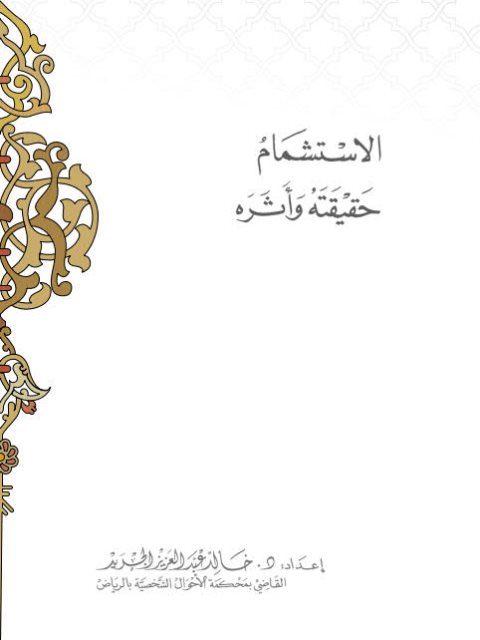 الاسْتشمَامُ
حَقيْقَتَهُ وَأَثَرَه
إعدَاد: د. خَالد عَبْد العَزيز الجريد
القَاضِي بمَحكمَة الأحْوَال الشَّخصيَّة بالريَاضْ